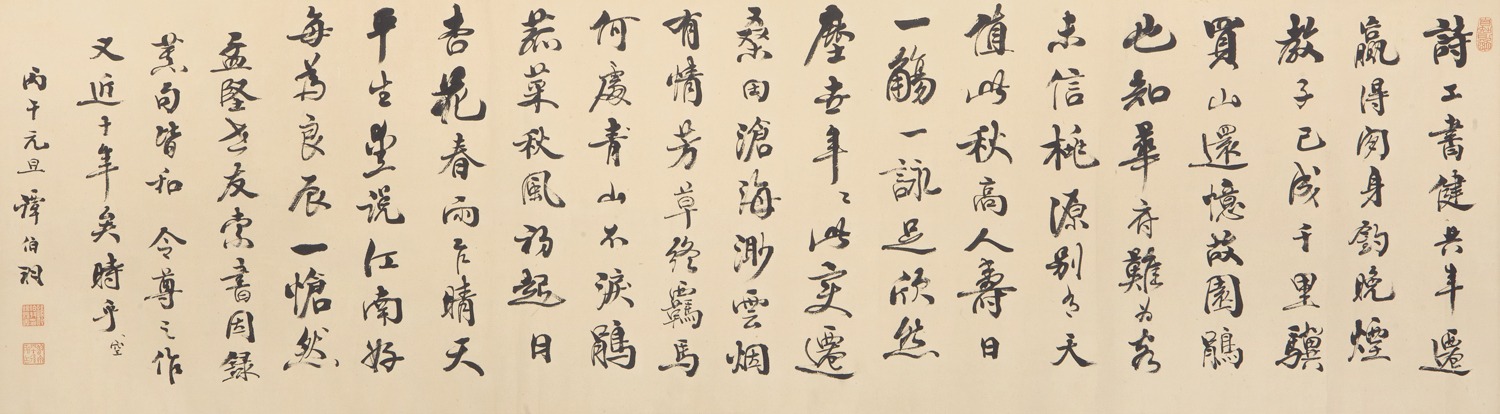 詩工書健共年遷
贏得閑身釣晚煙
教子已成千里驥
買山還憶故園鵑
也知華府難為客
未信桃源別有天
值此秋高人壽日
一觴一詠足欣然
塵世年〻此變遷
桑田滄海渺雲烟
有情芳草終羈馬
何處青山不淚鵑
菰菜秋風初起日
杏花春雨乍晴天
平生愛說江南好
每為良辰一愴然
孟堅老友索書因錄
舊句皆和 令尊之作
又近十年矣時乎
丙午元旦 譚伯羽